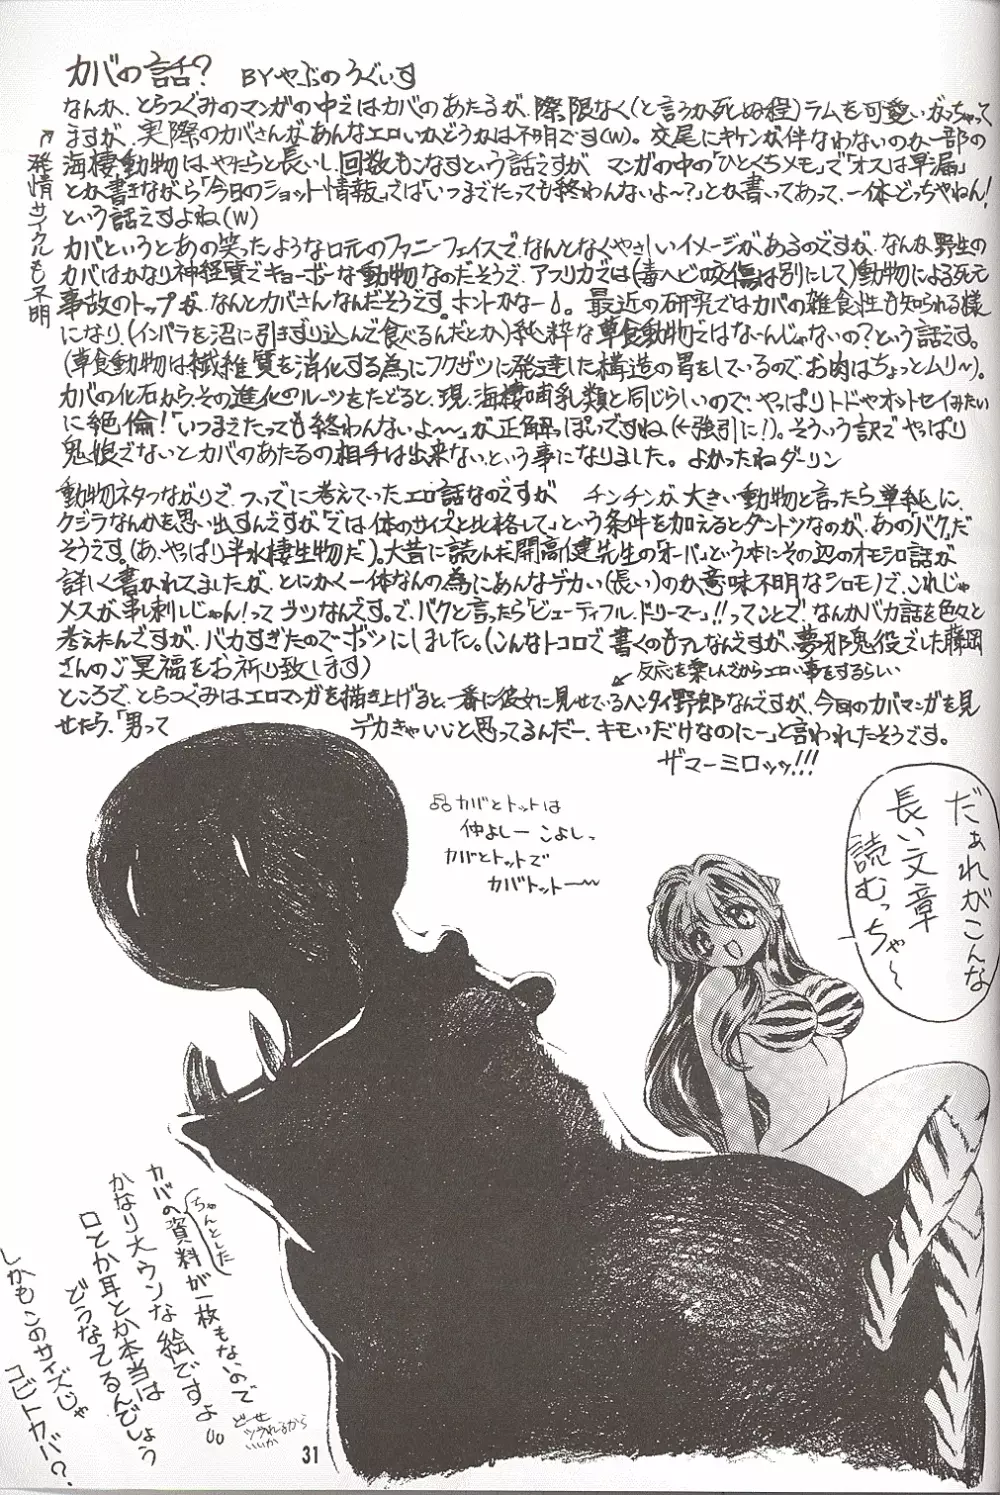 カバの話? BYやぶのうぐいす
なんか、とらつぐみのマンガの中ではカバのあたるが、際限なく(と言うか死ぬ程)ラムを可愛いがっちゃって
ますが、実際のカバさんがあんなエロいかどうかは不明です(W)。交尾にキケンが伴なわないのか一部の
海棲動物は、やたらと長いし、回数もこなすという話ですが マンガの中の「ひとくちメモ」で「オスは早漏」
とか書きながら「今日のショット情報」では「いつまでたっても終わんないよ〜?」とか書いてあって、一体どっちやねん!
という話ですよね(W)
↑発情サイクルも不明
カバというとあの笑ったような口元のファニーフェイスで、なんとなくやさしいイメージがあるのですが、なんか野生の
カバはかなり神経質でキョーボーな動物なのだそうで、アフリカでは(毒ヘビの咬傷は別にして)動物による死亡
事故のトップが、なんとカバさんなんだそうです。ホントかなー。最近の研究ではカバの雑食性も知られる様
になり、(インパラを沼に引きずり込んで食べるんだとか)純粋な草食動物ではな〜んじゃないの?という話です。
(草食動物は繊維質を消化する為にフクザツに発達した構造の胃をしているので、お肉はちょっとムリ〜)。
カバの化石から、その進化のルーツをたどると、現、海棲哺乳類と同じらしいので、やっぱりトドやオットセイみたい
に絶倫!「いつまでたっても終わんないよ〜〜」が正解っぽいですね、(←強引に!)。そういう訳でやっぱり
鬼娘でないとカバのあたるの相手は出来ない、という事になりました。よかったねダーリン
動物ネタつながりで、ついでに考えていったエロ話なのですが チンチンが大きい動物と言ったら単純に
クジラなんかを思い出すんですが「では体のサイズと比格して」という条件を加えるとダントツなのが、あの「バク」だ
そうです。(あ、やっぱり半水棲生物だ)。大昔に読んだ開高健先生の「オーパ」という本にその辺のオモシロ話が
詳しく書かれてましたが、とにかく一体なんの為にあんなデカい(長い)のか意味不明なシロモノで、これじゃ
メスが串刺しじゃん!ってウツなんです。で、バクと言ったら「ビューティフル・ドリーマー」!!ってことで、なんかバカ話を色々と
考えたんですが、バカすぎたのでボツにしました。(こんなトコロで書くのもアレなんですが、夢邪鬼役でした藤岡
さんのご冥福をお祈り致します)
↙反応を楽しんでからエロい事をするらしい
ところで、とらつぐみはエロマンガを描き上げると、一番に彼女に見せているヘンタイ野郎なんですが、今回のカバマンガを見
せたら、「男って デカきゃいいと思ってるんだー、キモいだけなのにー」と言われたそうです。
ザマーミロッッ!!!
♫カバとトットは
仲よしー こよし、
カバとトットで
カバトットー〜
だぁれがこんな
長い文章
読むっちゃ〜
カバの資料が一枚もないので
ちゃんとした
かなり大ウソな絵ですよ。
口とか耳とか本当は
どうなてるんでしょう
しかもこのサイズじゃ
コビトカバ?
どーせ
ツブれるから
いいか
31